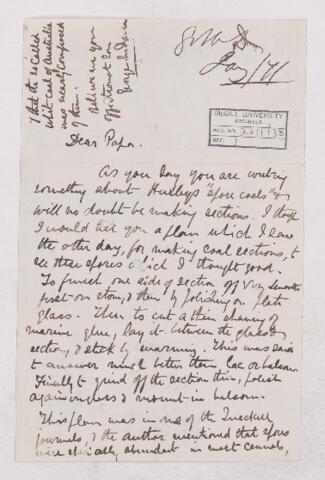 Jan/71
McGILL UNIVERSITY
ARCHIVES
ACC. NO.
REF.
that the so called
white coal of Australia
was nearly composed
of them.
Believe me your
affectionate Son
George
Dear Papa.
As you say you are writing
something about Huxley's "spore coals" &
will no doubt be making sections. I thought
I would tell you a plan which I saw
the other day, for making coal sections, to
see these spores which I thought good.
To first one side of section
first on stone, & then by polishing on plate
glass. Then to cut a thin shaving of
marine glue, lay it between the glass &
section, & stick by warming. This was said
to answer much better than Lac or balsam.
Finally to grind off the section thin, polish
again on glass & mount in balsam.
This plan was in one of the
journals, & the author mentioned that spores
were specially abundant in most cannels,